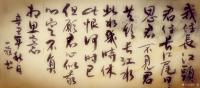 我住長江頭
君住長江尾日日
思君不見君
共飲長江水
此水幾時休
此恨何時已只
願君心似我
心定不負
相思意